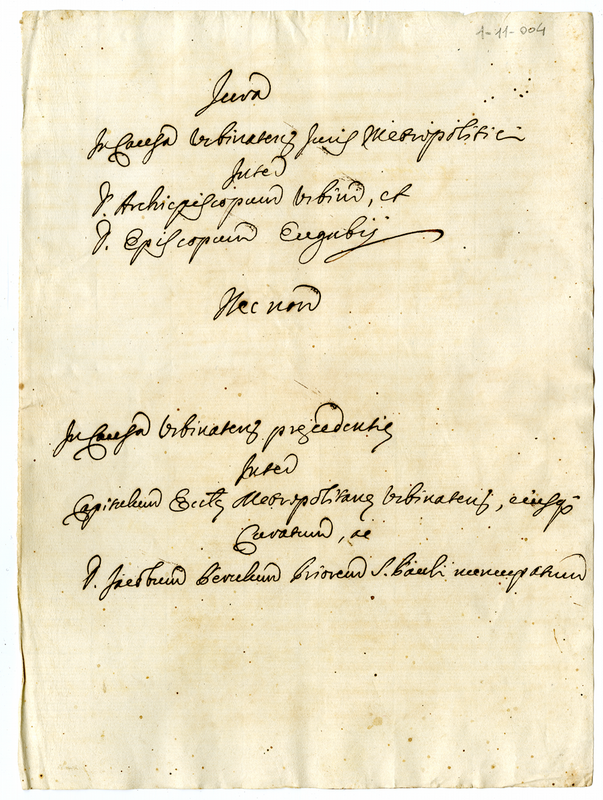 1-11-004
Jura
In Causa Urbinaten Juris Metropolitici
Inter
D. Archiepiscopum Urbini, et
D. Episcopum Eugubij
Nec non
In Causa Urbinaten precedentie
Inter
Capitulum Eccle Metropolitane Urbinaten, eiusq
Curatum, ac
D. Jacobum Priorem S. Pauli nuncupatum